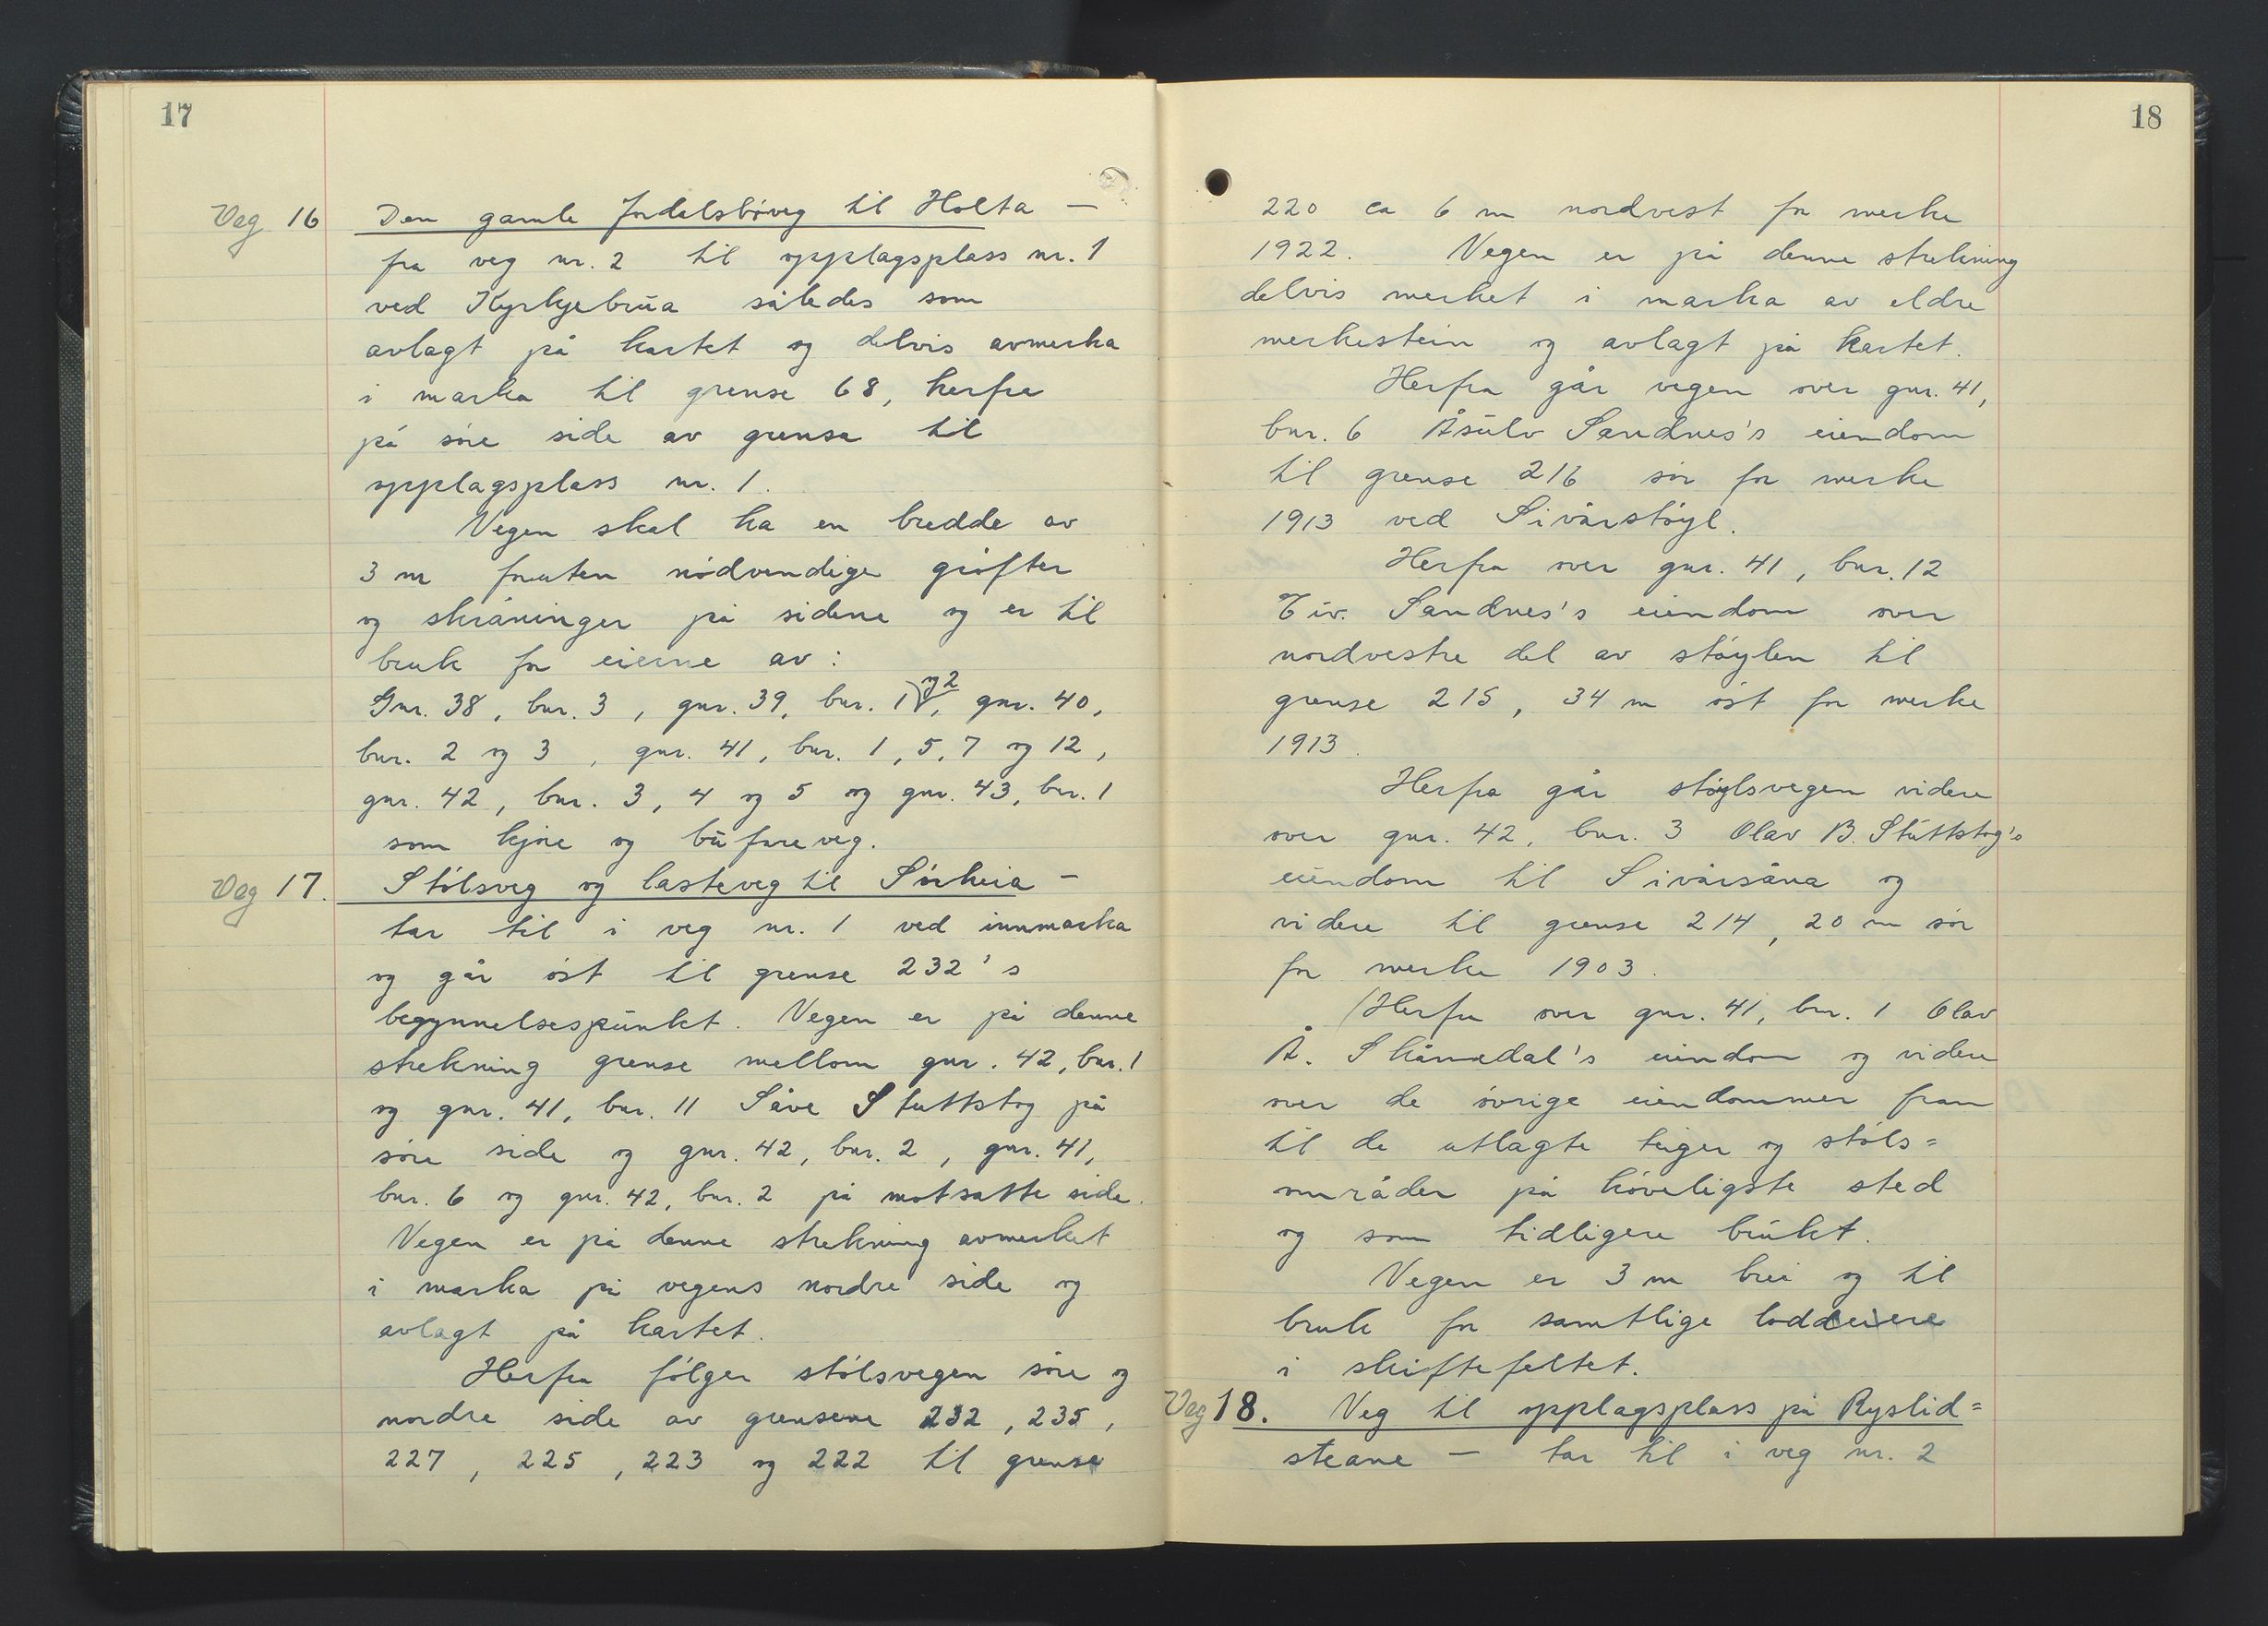 17
Veg 16 Den gamle Jordalsbøveg til Holta —
fra veg nr. 2 til opplagsplass nr. 1
ved Kyrkjebrua således som
avlagt på kartet og delvis avmerka
i marka til grense 68, herfra
på søre side av grensa til
opplagsplass nr. 1.
Vegen skal ha en bredde av
3 m foruten nødvendige grøfter
og skråninger på sidene og er til
bruk for eierne av:
Gnr. 38, bnr. 3, gnr. 39, bnr. 1 og 2, gnr. 40,
bnr. 2 og 3, gnr. 41, bnr. 1, 5, 7 og 12,
gnr. 42, bnr. 3, 4 og 5 og gnr. 43, bnr. 1
som kjøre og bufareveg.
Veg 17. Stølsveg og lasteveg til Sørheia —
tar til i veg nr. 1 ved innmarka
og går øst til grense 232's
begynnelsespunkt. Vegen er på denne
strekning grense mellom gnr. 42, bnr. 1
og gnr. 41, bnr. 11 Såve Stuttstog på
søre side og gnr. 42, bnr. 2, gnr. 41,
bnr. 6 og gnr. 42, bnr. 2 på motsatte side.
Vegen er på denne strekning avmerket
i marka på vegens nordre side og
avlagt på kartet.
Herfra følger stølsvegen søre og
nordre side av grensene 232, 235,
227, 225, 223 og 222 til grense
18
220 ca 6 m nordvest for merke
1922. Vegen er på denne strekning
delvis merket i marka av eldre
merkestein og avlagt på kartet.
Herfra går vegen over gnr. 41,
bnr. 6 Åsulv Sandnes's eiendom
til grense 216 sør for merke
1913 ved Sivarstøyl.
Herfra over gnr. 41, bnr. 12
Eiv. Sandnes's eiendom over
nordvestre del av støylen til
grense 215, 34 m øst for merke
1913.
Herfra går støylsvegen videre
over gnr. 42, bnr. 3 Olav B. Stuttstog's
eiendom til Sivarsåna og
videre til grense 214, 20 m sør
for merke 1903.
Herfra over gnr. 41, bnr. 1 Olav
Å. Skåmedal's eiendom og videre
over de øvrige eiendommer fram
til de utlagte teiger og støls=
områder på høveligste sted
og som tidligere brukt.
Vegen er 3 m brei og til
bruk for samtlige loddeiere
i skiftefeltet.
Veg 18. Veg til opplagsplass på Ryslid=
steane — tar til i veg nr. 2